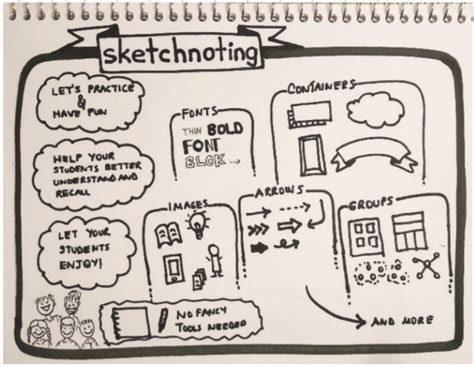 sketchnoting
LET'S PRACTICE
&
HAVE FUN
HELP YOUR
STUDENTS BETTER
UNDERSTAND AND
RECALL
LET YOUR
STUDENTS
ENJOY!
FONTS
THIN BOLD
FONT
BLCK...
CONTAINERS
IMAGES
ARROWS
GROUPS
NO FANCY
TOOLS NEEDED
AND MORE